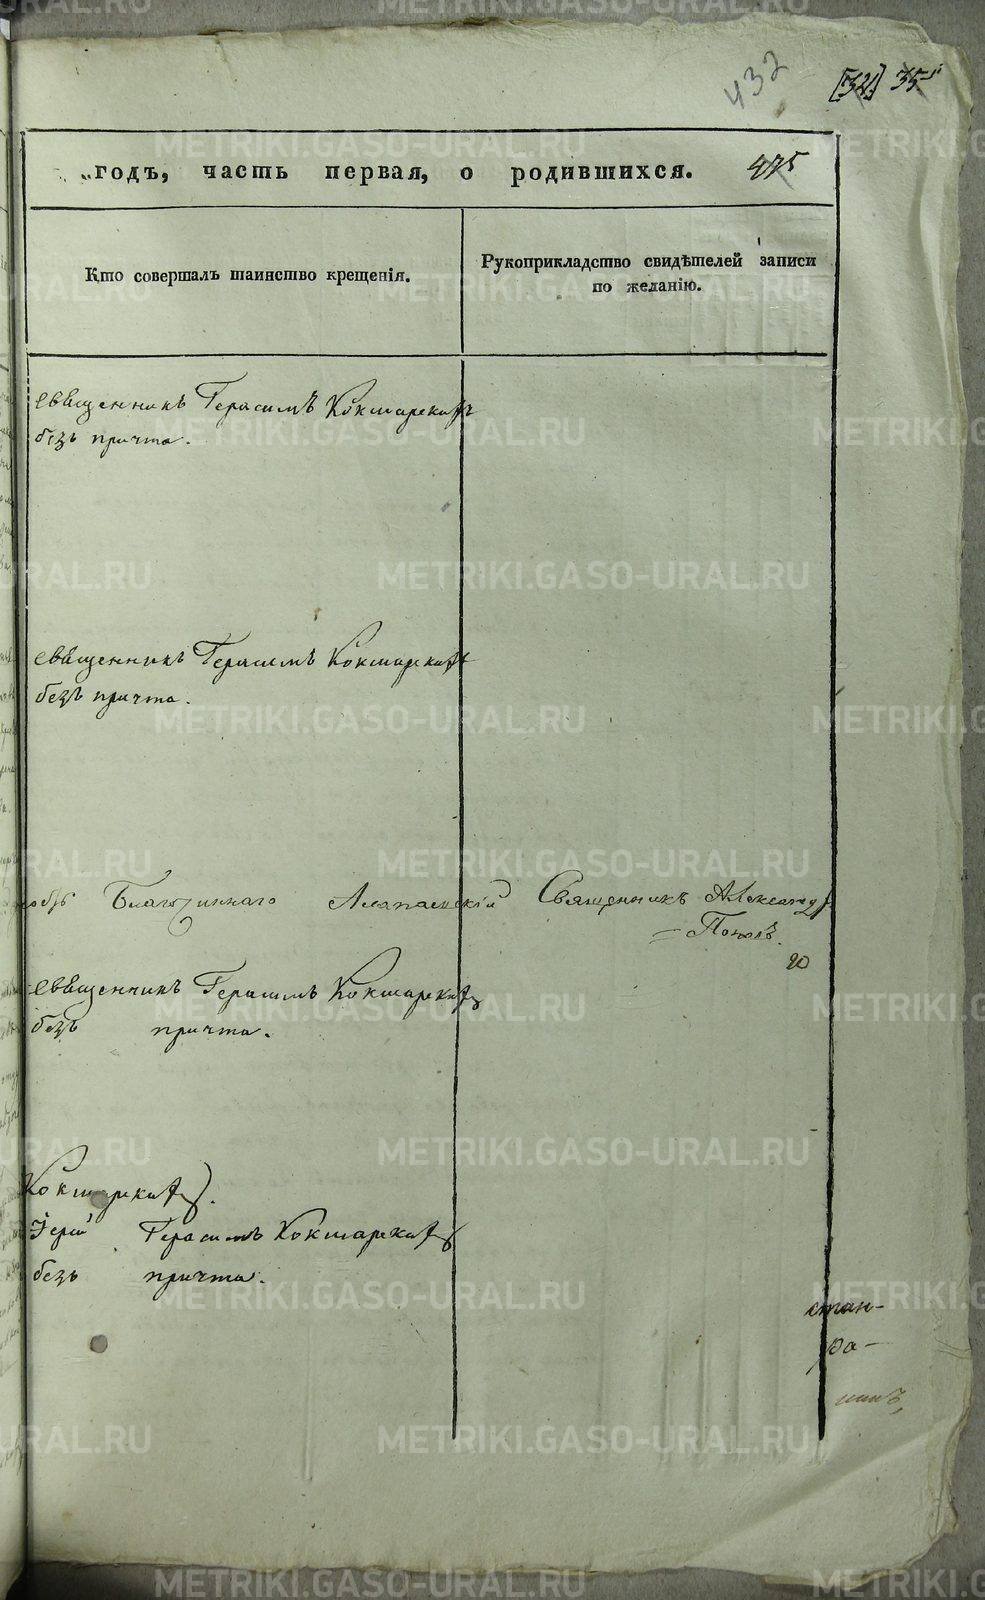 432
[32] 35
годъ, часть первая, о родившихся. 475
Кто совершалъ таинство крещенія.
Рукоприкладство свидѣтелей записи
по желанію.
священникъ Герасимъ Кокшарскій
безъ причта.
священникъ Герасимъ Кокшарскій
безъ причта.
Благочиннаго Священникъ Александръ
Поповъ.
20
священникъ Герасимъ Кокшарскій
безъ причта.
Кокшарскій.
Іерей Герасимъ Кокшарскій
безъ причта.
METRIKI.GASO-URAL.RU